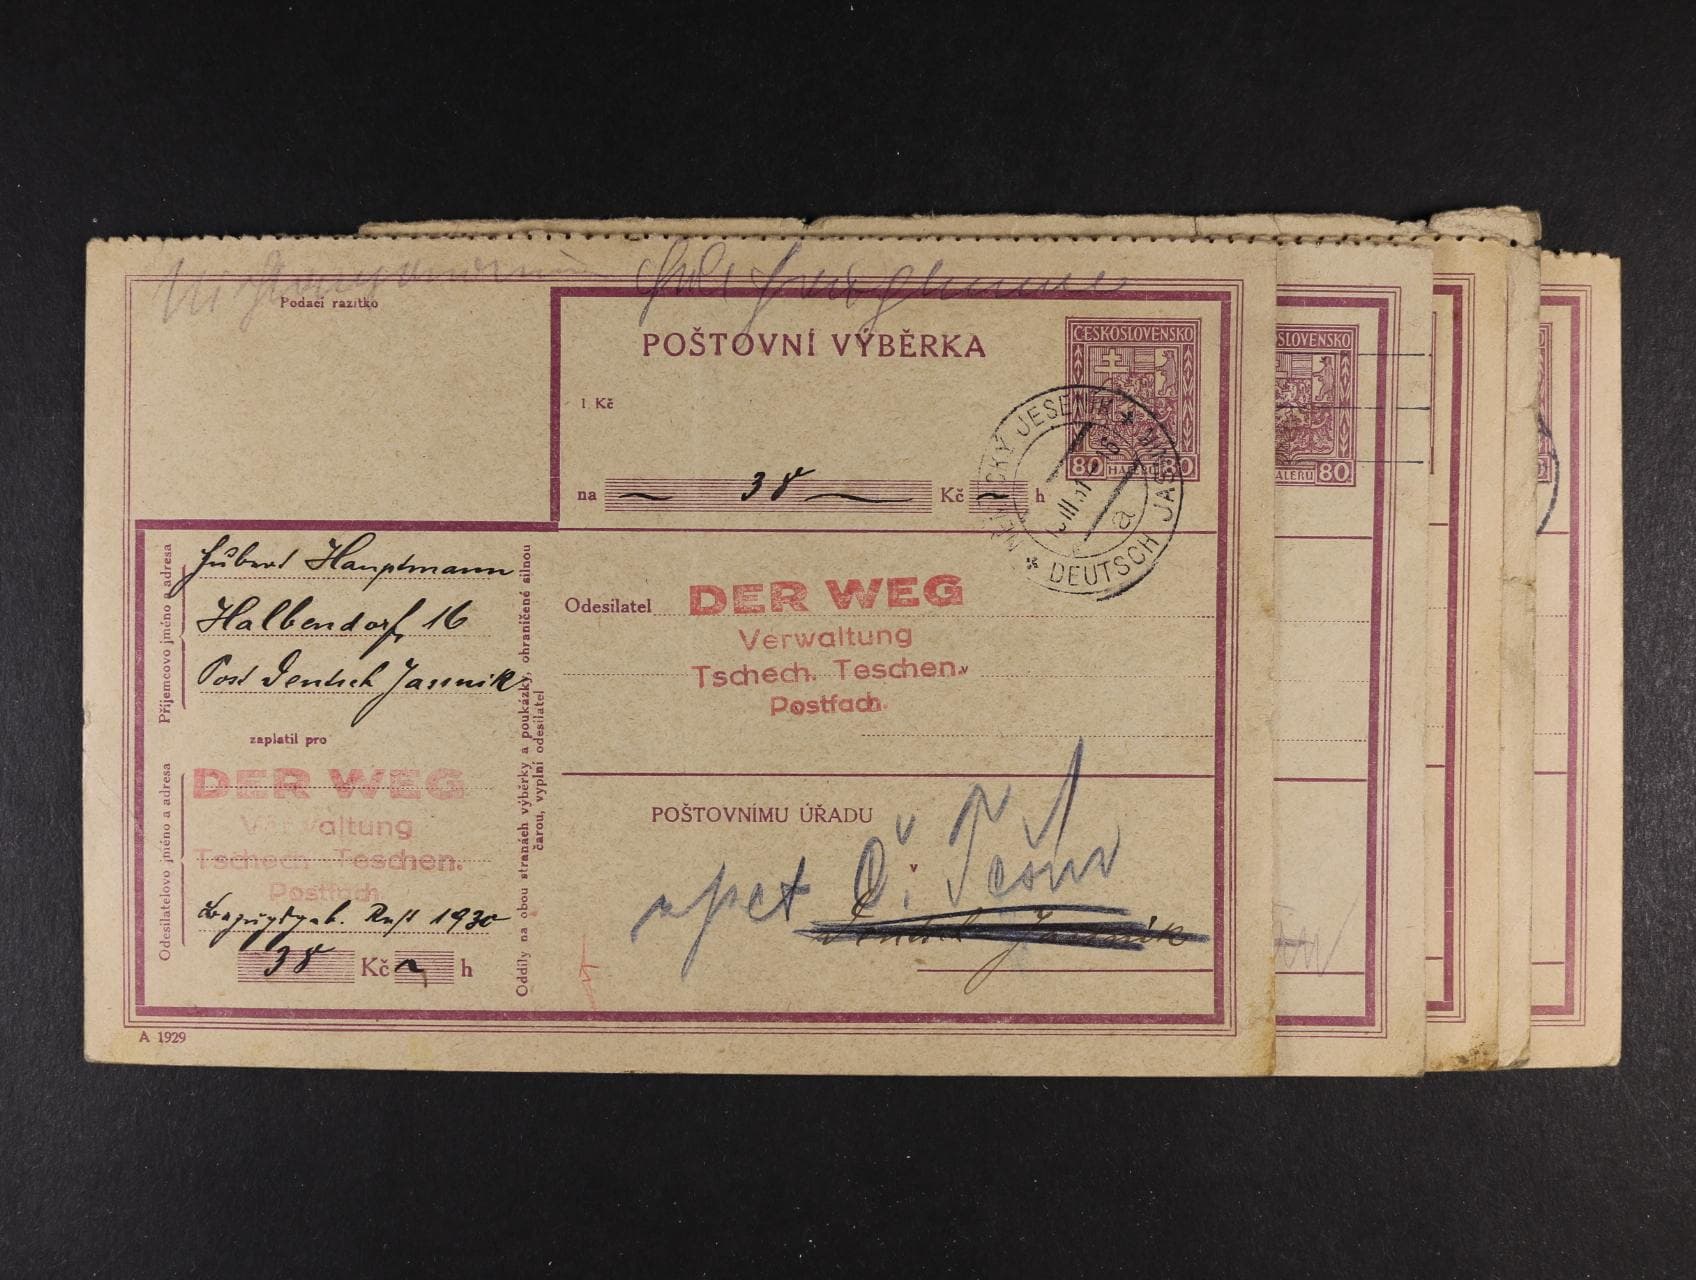 Podací razítko
POŠTOVNÍ VÝBĚRKA
ČESKOSLOVENSKO
SLOVENSKO
1 Kč
80 HALÉŘŮ 80
HALÉŘŮ 80
na 38 Kč h
NĚMECKÝ JESENÍK
DEUTSCH JASSNIK
III 31
a
Příjemcovo jméno a adresa
Hubert Hauptmann
Halbendorf, 16
Post Deutsch Jassnik
zaplatil pro
Odesílatelovo jméno a adresa
DER WEG
Verwaltung
Tschech. Teschen.
Postfach.
Rest 1930
38 Kč h
Oddíly na obou stranách výběrky a poukázky, ohraničené silnou
čarou, vyplní odesílatel
Odesílatel DER WEG
Verwaltung
Tschech. Teschen.
Postfach.
POŠTOVNÍMU ÚŘADU
v
zpět Č. Těšín
Deutsch Jassnik
A 1929